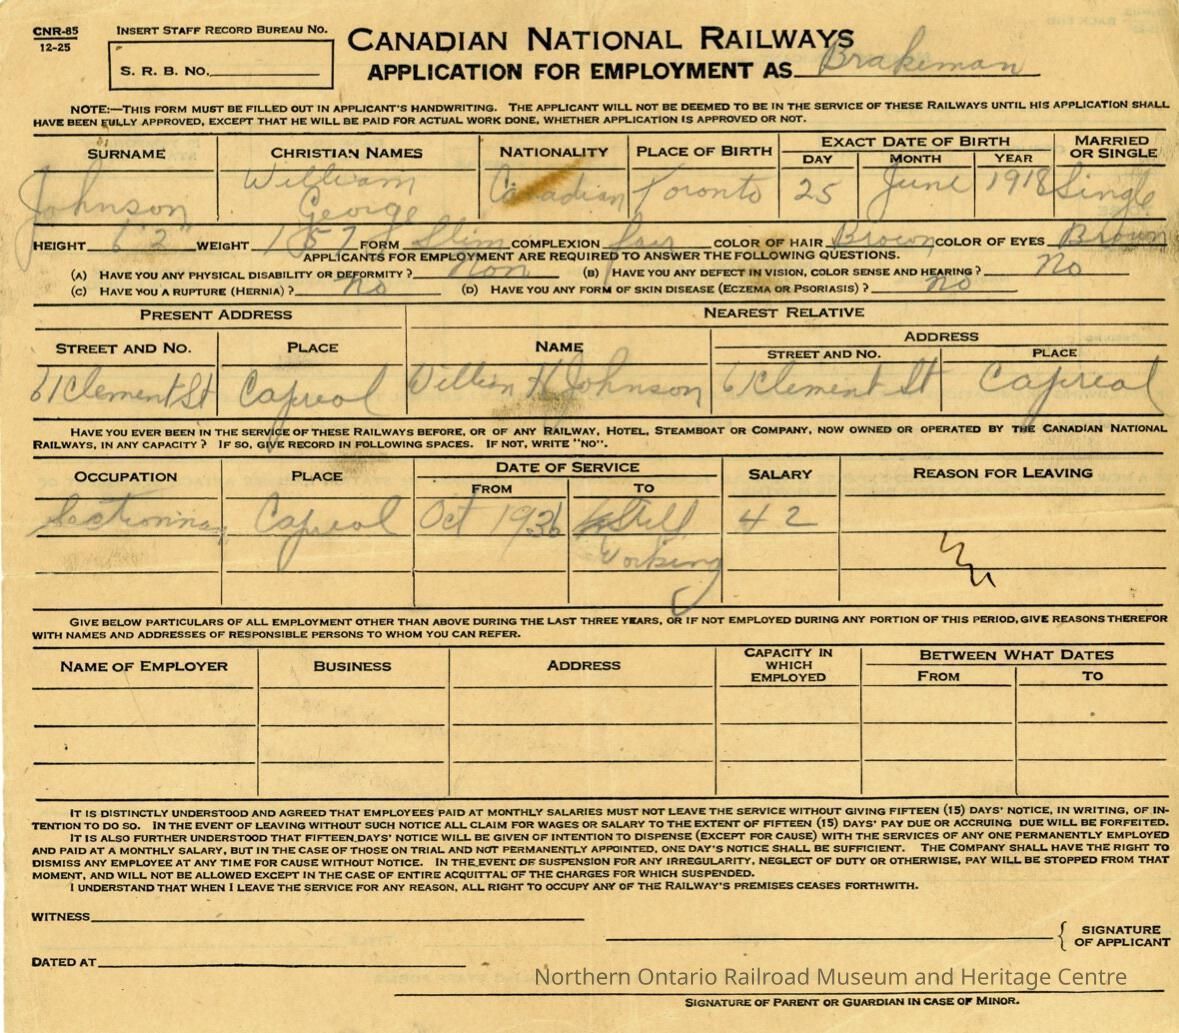 CNR-85
12-25
INSERT STAFF RECORD BUREAU NO.
S. R. B. NO.
CANADIAN NATIONAL RAILWAYS
APPLICATION FOR EMPLOYMENT AS Brakeman
NOTE:—THIS FORM MUST BE FILLED OUT IN APPLICANT'S HANDWRITING. THE APPLICANT WILL NOT BE DEEMED TO BE IN THE SERVICE OF THESE RAILWAYS UNTIL HIS APPLICATION SHALL
HAVE BEEN FULLY APPROVED, EXCEPT THAT HE WILL BE PAID FOR ACTUAL WORK DONE, WHETHER APPLICATION IS APPROVED OR NOT.
SURNAME CHRISTIAN NAMES NATIONALITY PLACE OF BIRTH EXACT DATE OF BIRTH MARRIED OR SINGLE
DAY MONTH YEAR
Johnson William George Canadian Toronto 25 June 1918 Single
HEIGHT 6'2" WEIGHT 157 FORM Slim COMPLEXION fair COLOR OF HAIR Brown COLOR OF EYES Brown
APPLICANTS FOR EMPLOYMENT ARE REQUIRED TO ANSWER THE FOLLOWING QUESTIONS.
(A) HAVE YOU ANY PHYSICAL DISABILITY OR DEFORMITY? Non (B) HAVE YOU ANY DEFECT IN VISION, COLOR SENSE AND HEARING? No
(C) HAVE YOU A RUPTURE (HERNIA)? No (D) HAVE YOU ANY FORM OF SKIN DISEASE (ECZEMA OR PSORIASIS)? No
PRESENT ADDRESS NEAREST RELATIVE
STREET AND NO. PLACE NAME ADDRESS
STREET AND NO. PLACE
61 Clement St Capreol Willian H Johnson 61 Clement St Capreol
HAVE YOU EVER BEEN IN THE SERVICE OF THESE RAILWAYS BEFORE, OR OF ANY RAILWAY, HOTEL, STEAMBOAT OR COMPANY, NOW OWNED OR OPERATED BY THE CANADIAN NATIONAL
RAILWAYS, IN ANY CAPACITY? IF SO, GIVE RECORD IN FOLLOWING SPACES. IF NOT, WRITE "NO".
OCCUPATION PLACE DATE OF SERVICE SALARY REASON FOR LEAVING
FROM TO
Sectionman Capreol Oct 1936 Still 42
Working
GIVE BELOW PARTICULARS OF ALL EMPLOYMENT OTHER THAN ABOVE DURING THE LAST THREE YEARS, OR IF NOT EMPLOYED DURING ANY PORTION OF THIS PERIOD, GIVE REASONS THEREFOR
WITH NAMES AND ADDRESSES OF RESPONSIBLE PERSONS TO WHOM YOU CAN REFER.
NAME OF EMPLOYER BUSINESS ADDRESS CAPACITY IN WHICH EMPLOYED BETWEEN WHAT DATES
FROM TO
IT IS DISTINCTLY UNDERSTOOD AND AGREED THAT EMPLOYEES PAID AT MONTHLY SALARIES MUST NOT LEAVE THE SERVICE WITHOUT GIVING FIFTEEN (15) DAYS' NOTICE, IN WRITING, OF IN-
TENTION TO DO SO. IN THE EVENT OF LEAVING WITHOUT SUCH NOTICE ALL CLAIM FOR WAGES OR SALARY TO THE EXTENT OF FIFTEEN (15) DAYS' PAY DUE OR ACCRUING DUE WILL BE FORFEITED.
IT IS ALSO FURTHER UNDERSTOOD THAT FIFTEEN DAYS' NOTICE WILL BE GIVEN OF INTENTION TO DISPENSE (EXCEPT FOR CAUSE) WITH THE SERVICES OF ANY ONE PERMANENTLY EMPLOYED
AND PAID AT A MONTHLY SALARY, BUT IN THE CASE OF THOSE ON TRIAL AND NOT PERMANENTLY APPOINTED, ONE DAY'S NOTICE SHALL BE SUFFICIENT. THE COMPANY SHALL HAVE THE RIGHT TO
DISMISS ANY EMPLOYEE AT ANY TIME FOR CAUSE WITHOUT NOTICE. IN THE EVENT OF SUSPENSION FOR ANY IRREGULARITY, NEGLECT OF DUTY OR OTHERWISE, PAY WILL BE STOPPED FROM THAT
MOMENT, AND WILL NOT BE ALLOWED EXCEPT IN THE CASE OF ENTIRE ACQUITTAL OF THE CHARGES FOR WHICH SUSPENDED.
I UNDERSTAND THAT WHEN I LEAVE THE SERVICE FOR ANY REASON, ALL RIGHT TO OCCUPY ANY OF THE RAILWAY'S PREMISES CEASES FORTHWITH.
WITNESS
SIGNATURE
OF APPLICANT
DATED AT
Northern Ontario Railroad Museum and Heritage Centre
SIGNATURE OF PARENT OR GUARDIAN IN CASE OF MINOR.